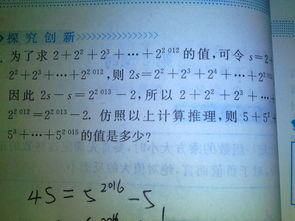 探究创新
为了求 2+2²+2³+…+2²⁰¹² 的值,可令 s=2+
2²+2³+…+2²⁰¹²,则 2s=2²+2³+2⁴+…+2²⁰¹
因此 2s-s=2²⁰¹³-2,所以 2+2²+2³+…
2²⁰¹²=2²⁰¹³-2. 仿照以上计算推理,则 5+5²+
5³+…+5²⁰¹⁵ 的值是多少?
4S=5²⁰¹⁶-5